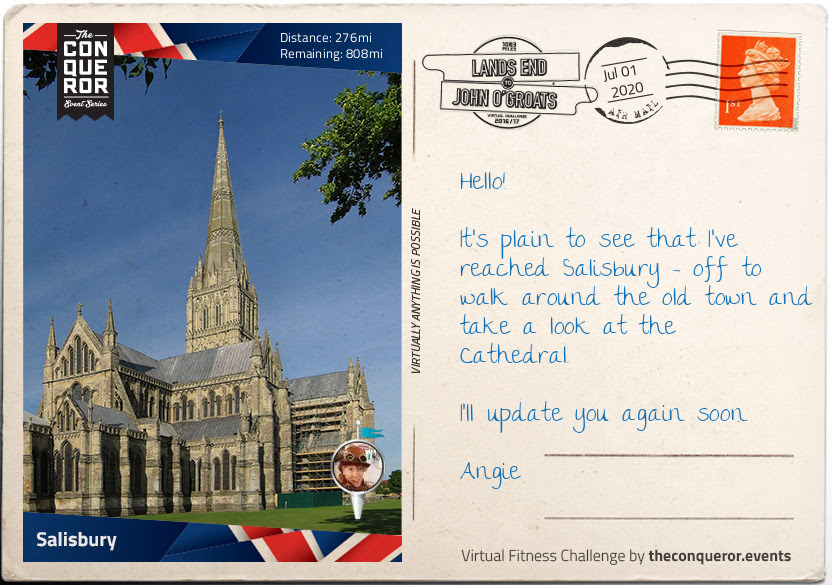 The
CON
QUE
ROR
Event Series
Distance: 276mi
Remaining: 808mi
Salisbury
VIRTUALLY ANYTHING IS POSSIBLE
1083
MILES
LANDS END
TO
JOHN O'GROATS
VIRTUAL CHALLENGE
2016/17
Jul 01
2020
AIR MAIL
1st
Hello!
It's plain to see that I've
reached Salisbury - off to
walk around the old town and
take a look at the
Cathedral.
I'll update you again soon
Angie
Virtual Fitness Challenge by theconqueror.events